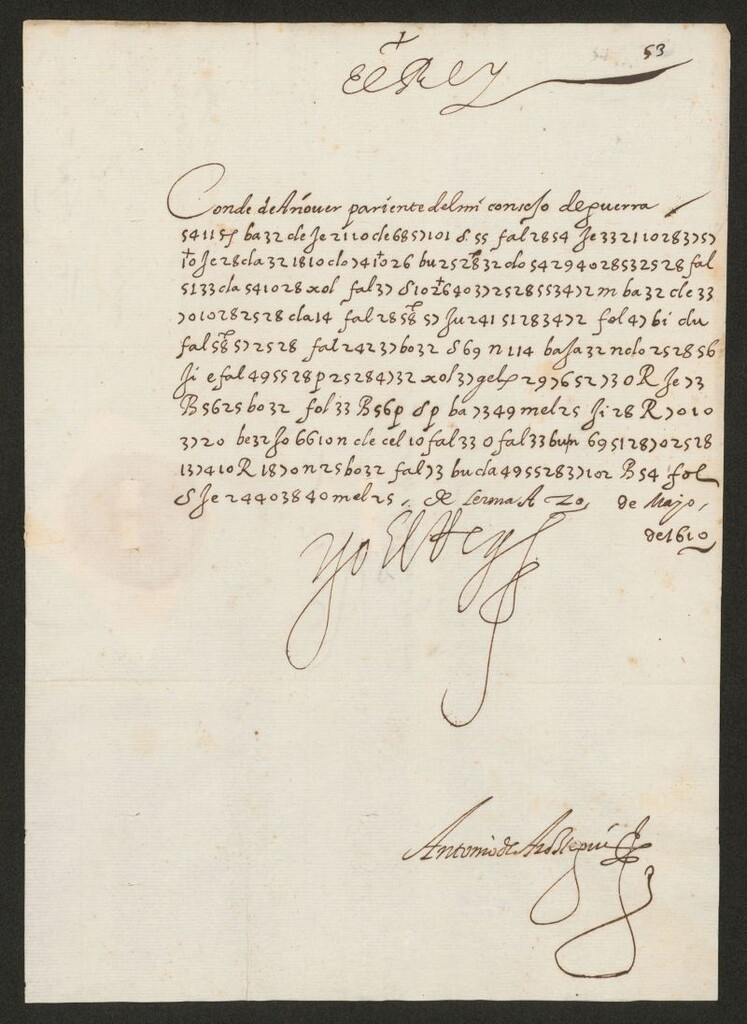 53
El Rey
Conde de Añover pariente del mi consejo de guerra
54115 ba32 de Je2110 de 685)101 8.55 fal2854 Je332110283)5)
Je28 da 321810 do)41 26 bu252 32 do 54294028532528 fal
5133 da 541028 xol fal3) 810 2640 3)25285534)2 m ba32 de 33
)010282528 da14 fal28 5) Ju241512834)2 fol4) bi du
fal 5)2528 fal2423)bo32 869 n114 baJa32 ndo252856
Ji e fal495528 25284)32 xol3) gel 29)652)30 R Je)3
B5625bo32 fol33 B56 8 ba)349mel25 Ji28 R)010
3)20 be32Jo6610n de cel10fal330fal33bu 695128)02528
13)410R18)0n25bo32 fal)3 buda4955283)102 B54 fol
8Je24403840mel25. De Lerma A 20, de Mayo,
de 1610
Yo El Rey
Antonio de Aroztegui